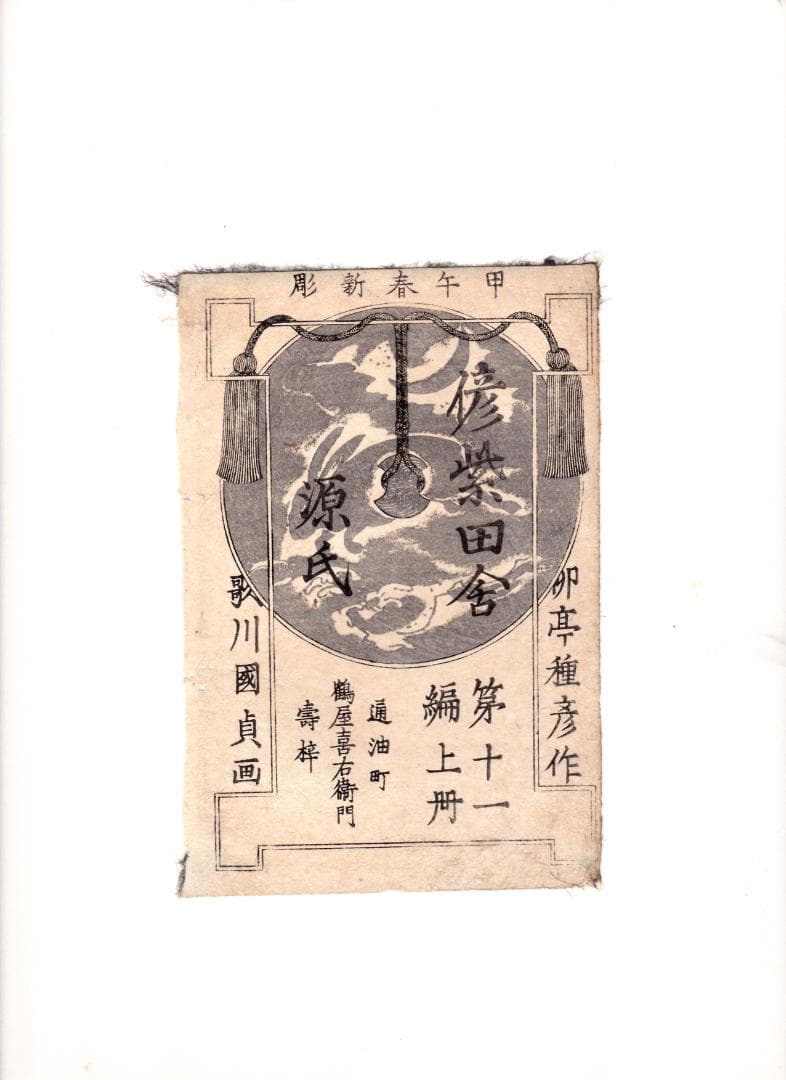 甲午春新彫
柳亭種彦作
偐紫田舎
源氏
第十一
編上冊
通油町
鶴屋喜右衛門
壽梓
歌川國貞画